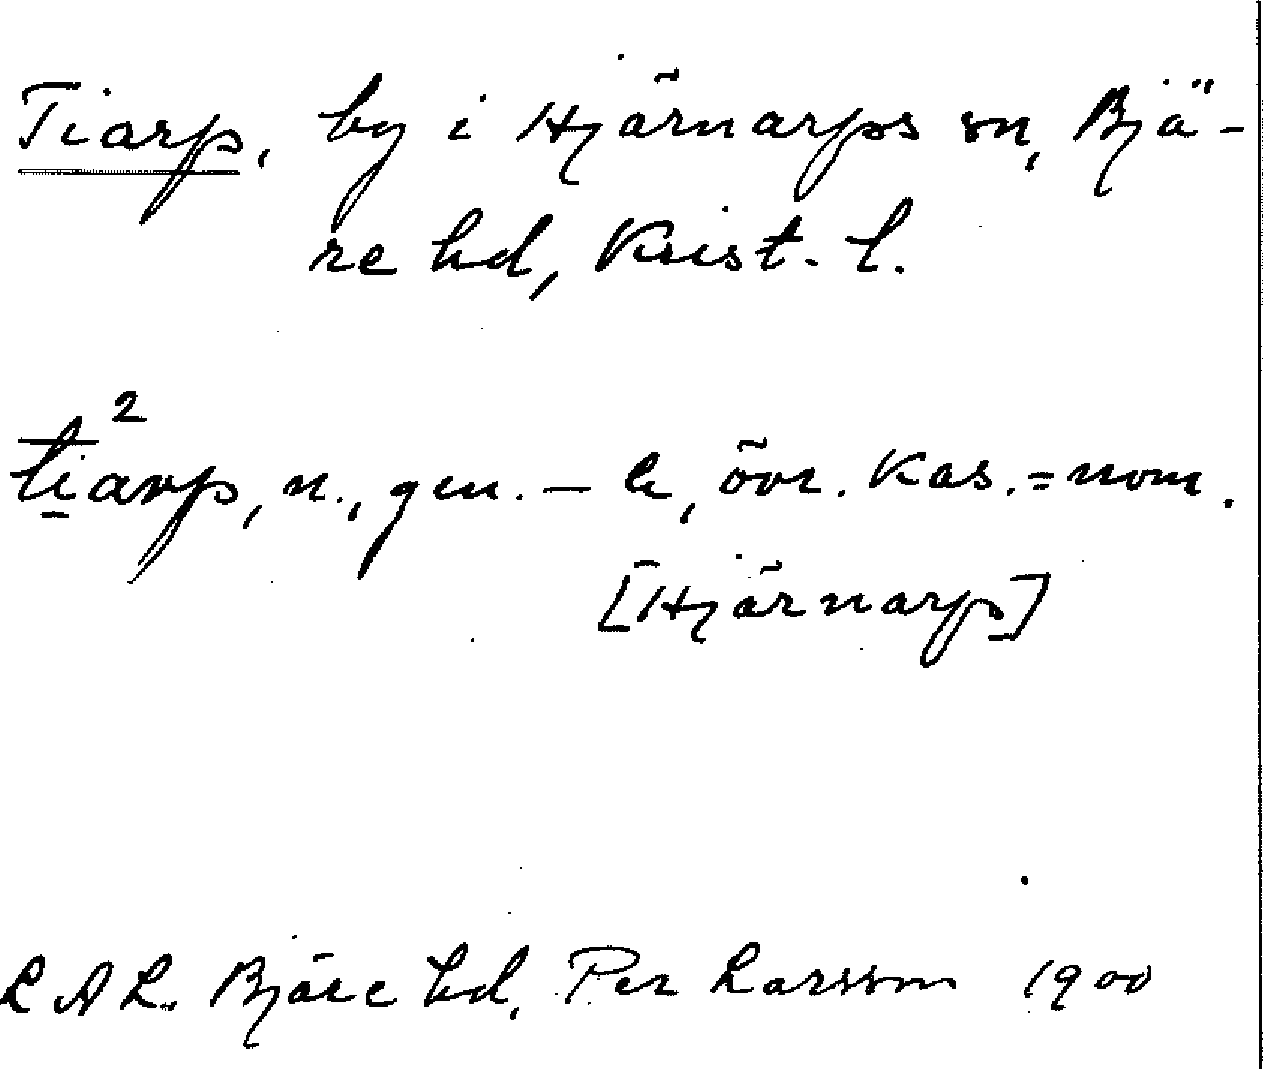 Tiarp, by i Hjärnarps sn, Bjä-
re hd, Krist. l.
ti²arp, n., gen. – övr. kas. = nom.
[Hjärnarp]
L A L. Bjäre hd, Per Larsson 1900